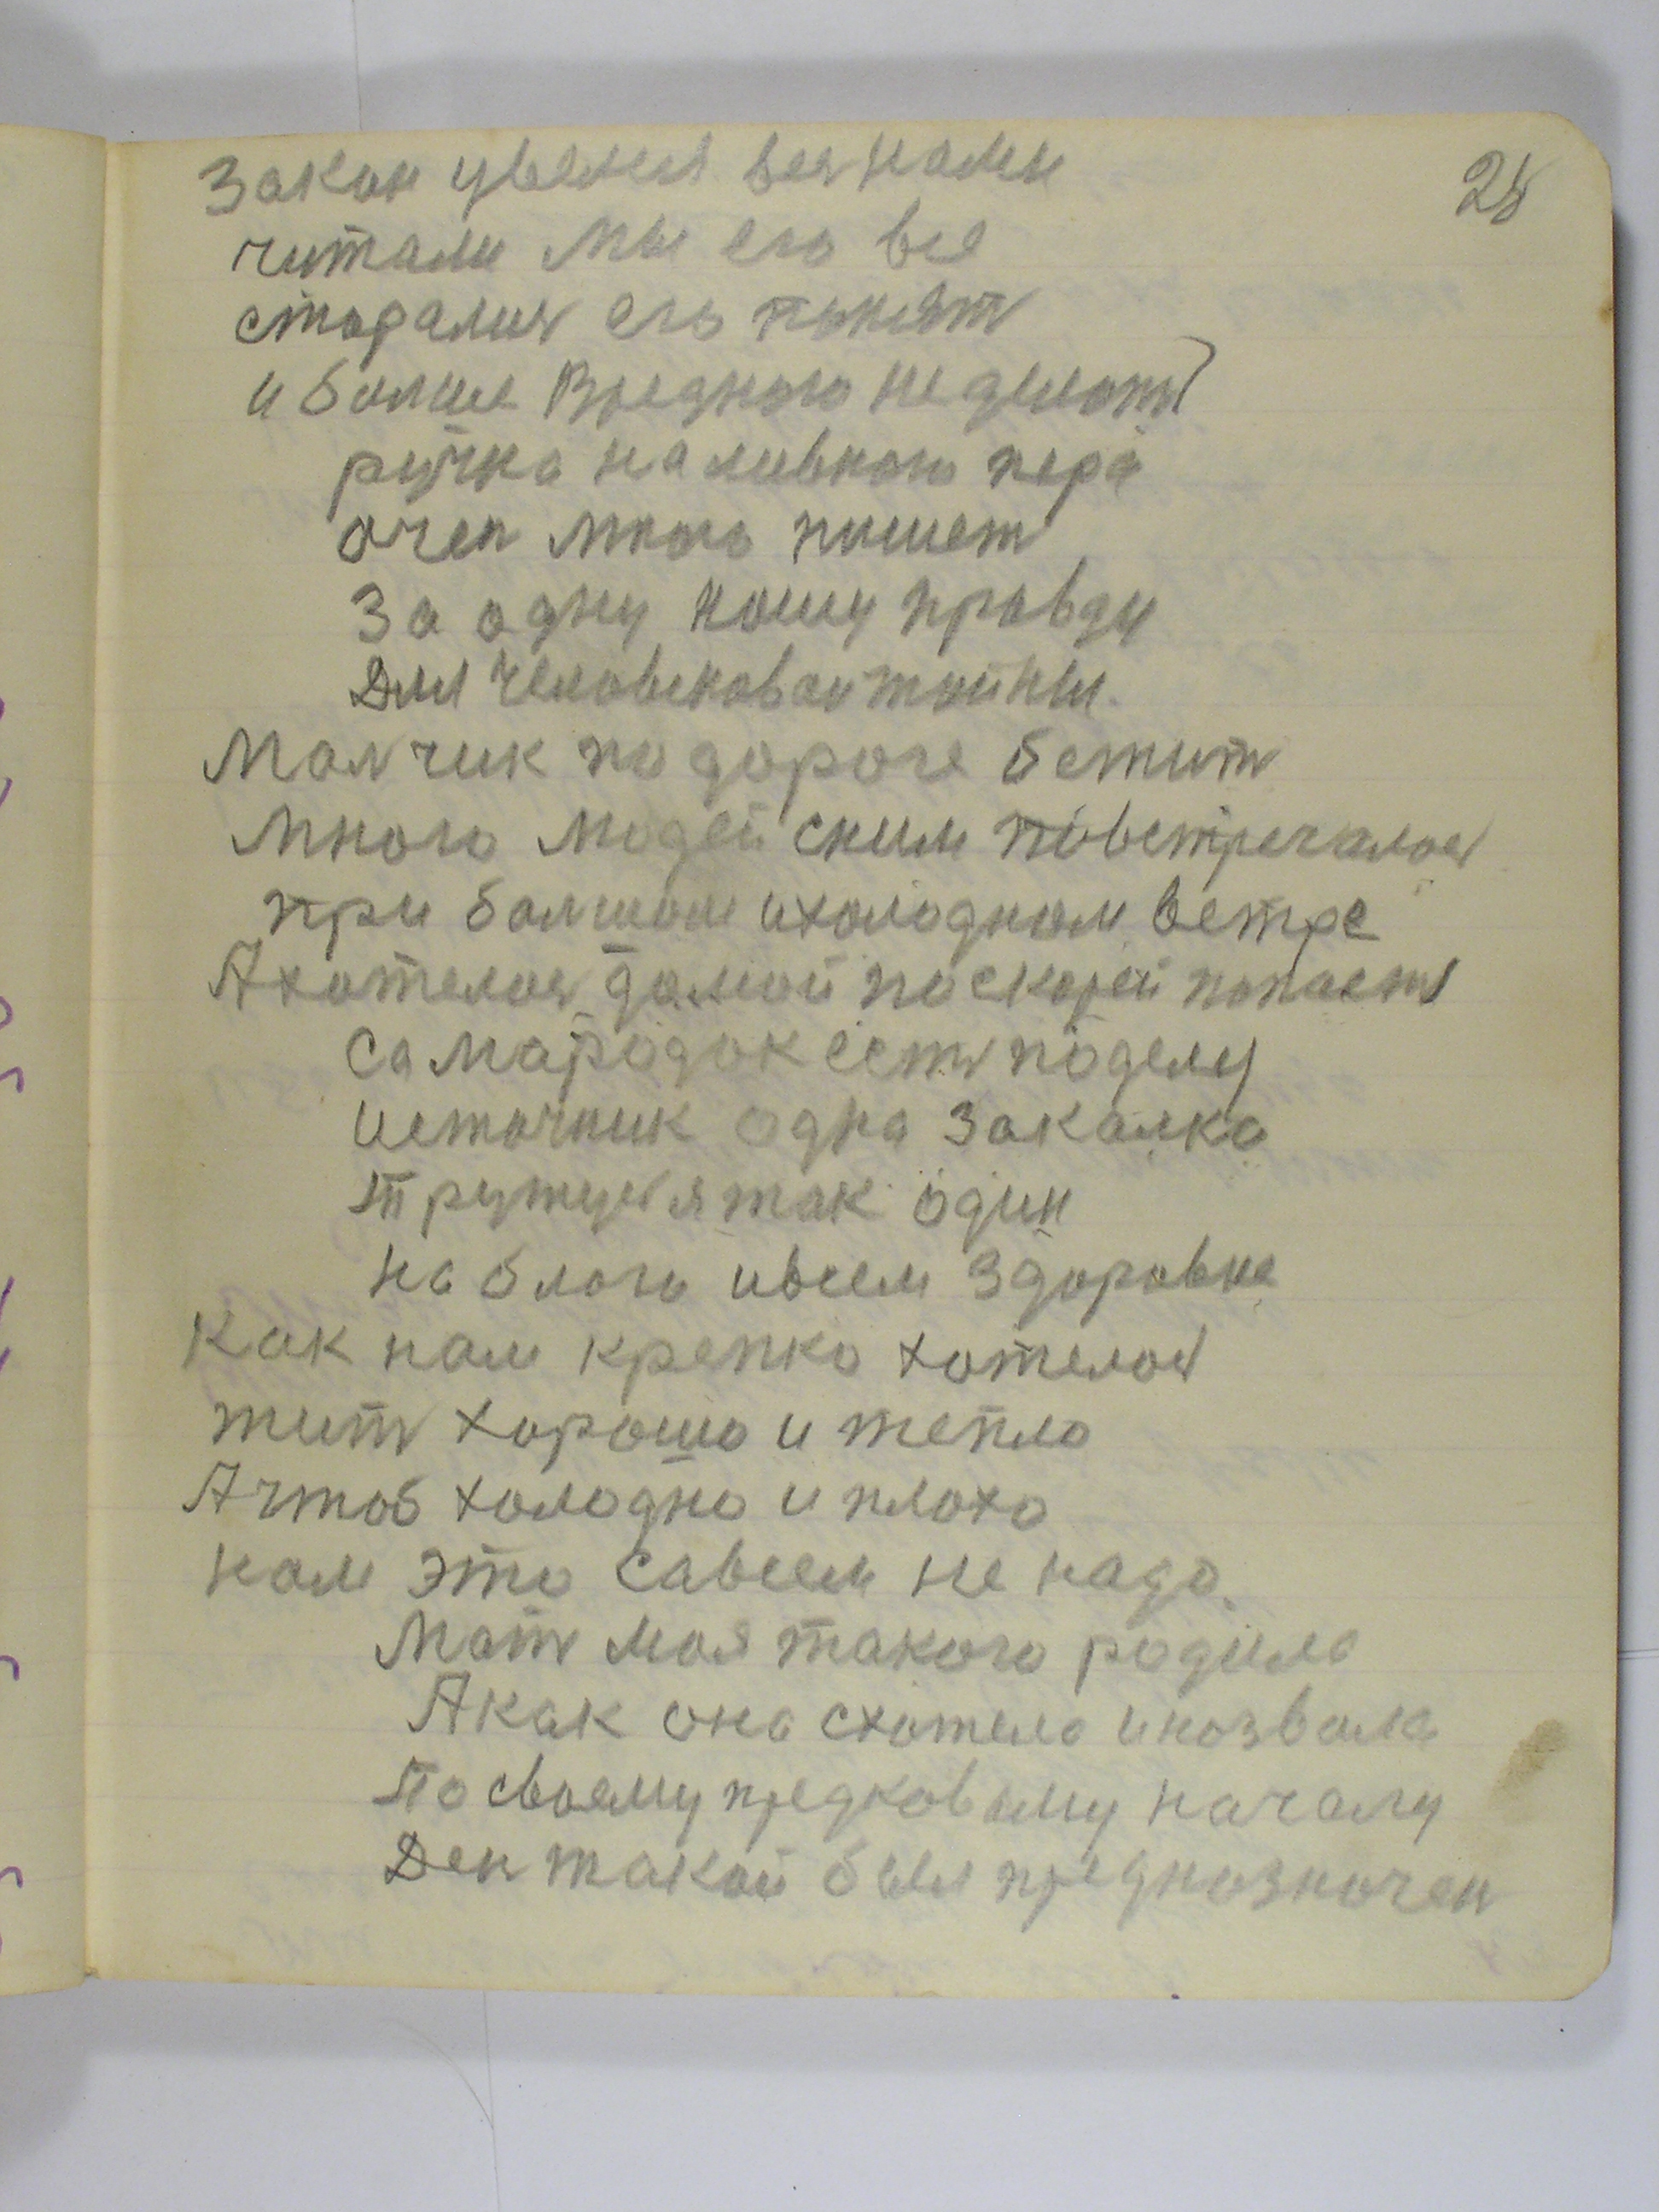 28
Закон увелся вся нами
читали мы его все
старались его понят
и болше вредного не делать
ручка наливного пера
очен много пишет
За одну нашу правду
Для человековаи тайны.
Малчик по дороге бежит
Много людей сним повстречалось
при болшом ихолодном ветре
Ахотелось домой поскорей попасть
Самародок есть поделу
источник одна закалка
тружусь я так один
на благо ивсем здоровие
Как нам крепко хотелось
жить хорошо и тепло
Ачтоб холодно и плохо
нам это савсем не надо.
Мать моя такого родила
Акак она схотела иназвала
По своему предковаму началу
Ден такой был предназначен